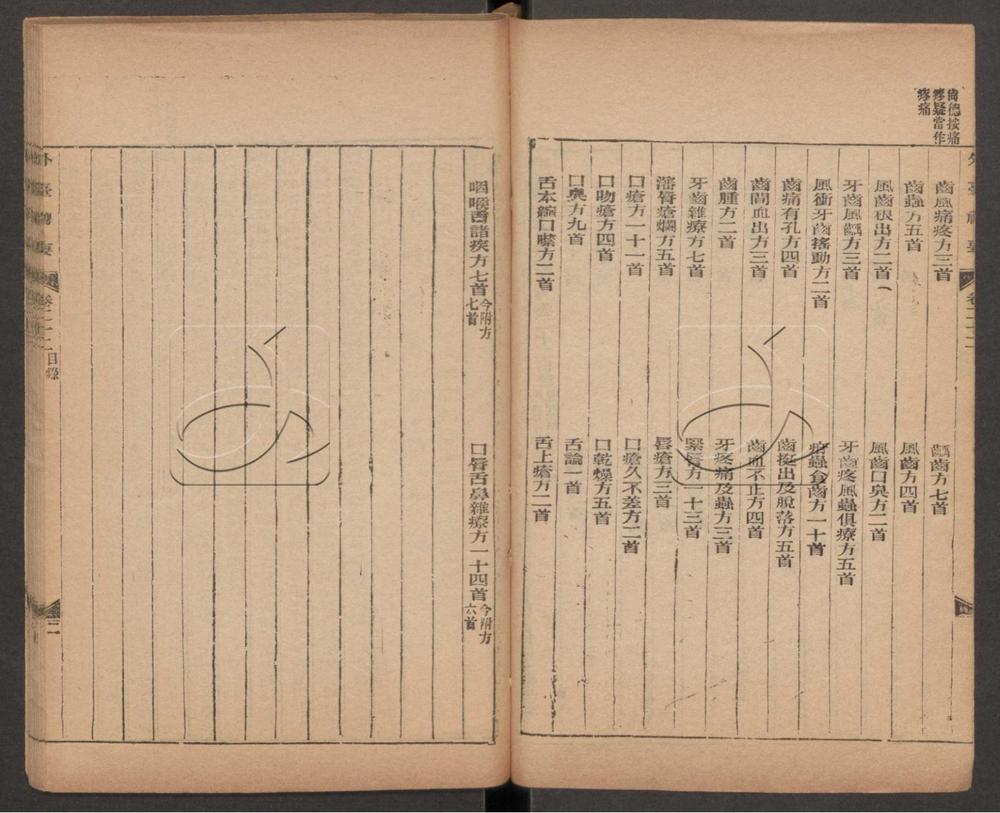 尚德按痛
疼疑當作
疼痛
齒風痛疼方三首
齲齒方七首
齒蟲方五首
風齒方四首
風齒根出方二首
風齒口臭方二首
牙齒風齲方三首
牙齒疼風蟲俱療方五首
風衝牙齒搖動方二首
疳蟲食齒方一十首
齒痛有孔方四首
齒挺出及脫落方五首
齒間血出方三首
齒血不止方四首
齒腫方二首
牙疼痛及蟲方三首
牙齒雜療方七首
緊脣方一十三首
瀋脣瘡爛方五首
脣瘡方三首
口瘡方一十一首
口瘡久不差方二首
口吻瘡方四首
口乾燥方五首
口臭方九首
舌論一首
舌本縮口噤方二首
舌上瘡方二首
咽喉舌諸疾方七首今附方七首
口脣舌鼻雜療方一十四首今附方六首
卷二十二目錄
二